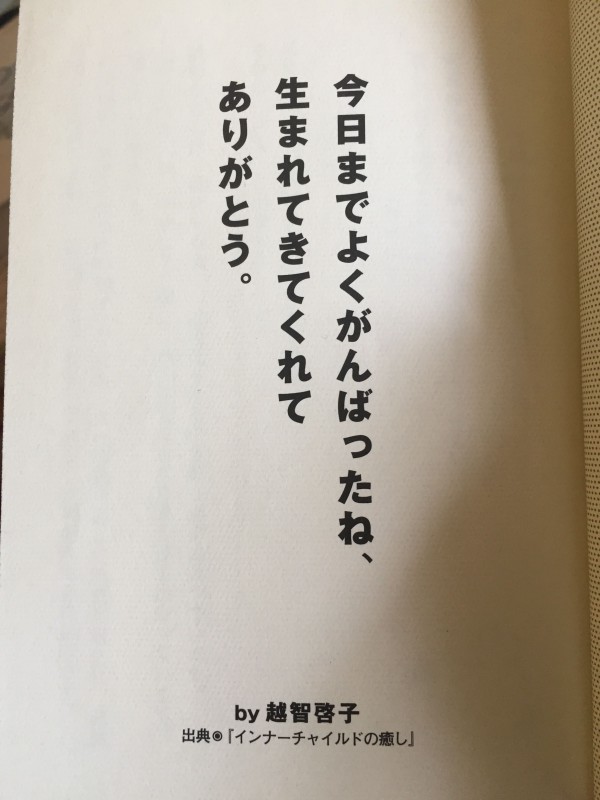 今日までよくがんばったね、
生まれてきてくれて
ありがとう。
by 越智啓子
出典◉『インナーチャイルドの癒し』